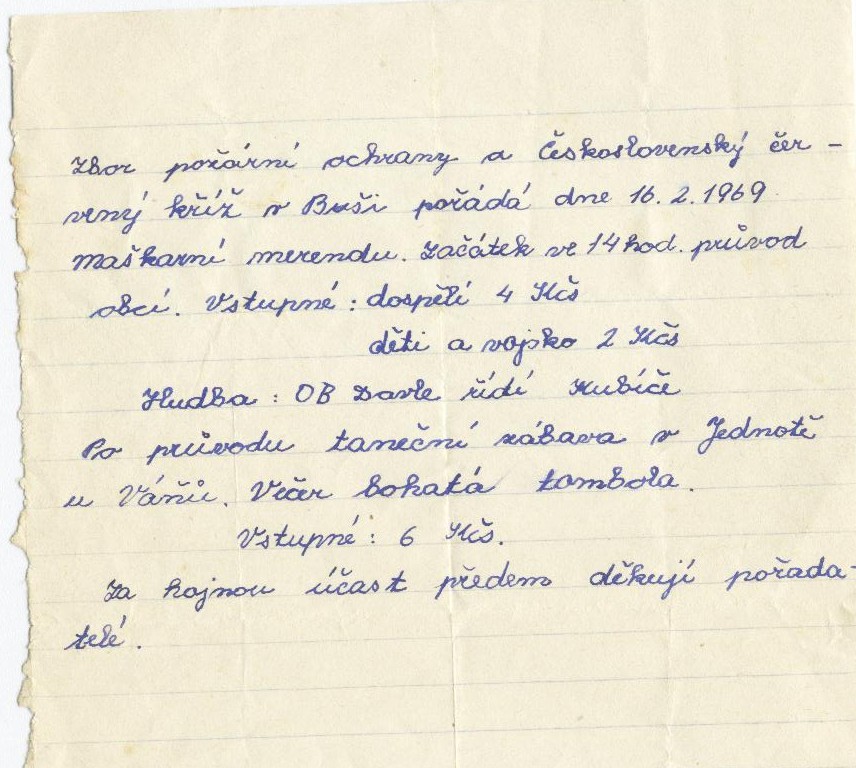 Zbor požární ochrany a Československý čer-
vený kříž v Buši pořádá dne 16.2.1969
maškarní merendu. Začátek ve 14 hod. průvod
obcí. Vstupné: dospělí 4 Kčs
děti a vojsko 2 Kčs
Hudba: OB Davle řídí Kubíče
Po průvodu taneční zábava v Jednotě
u Váňů. Večer bohatá tombola.
Vstupné: 6 Kčs.
Za hojnou účast předem děkují pořada-
telé.